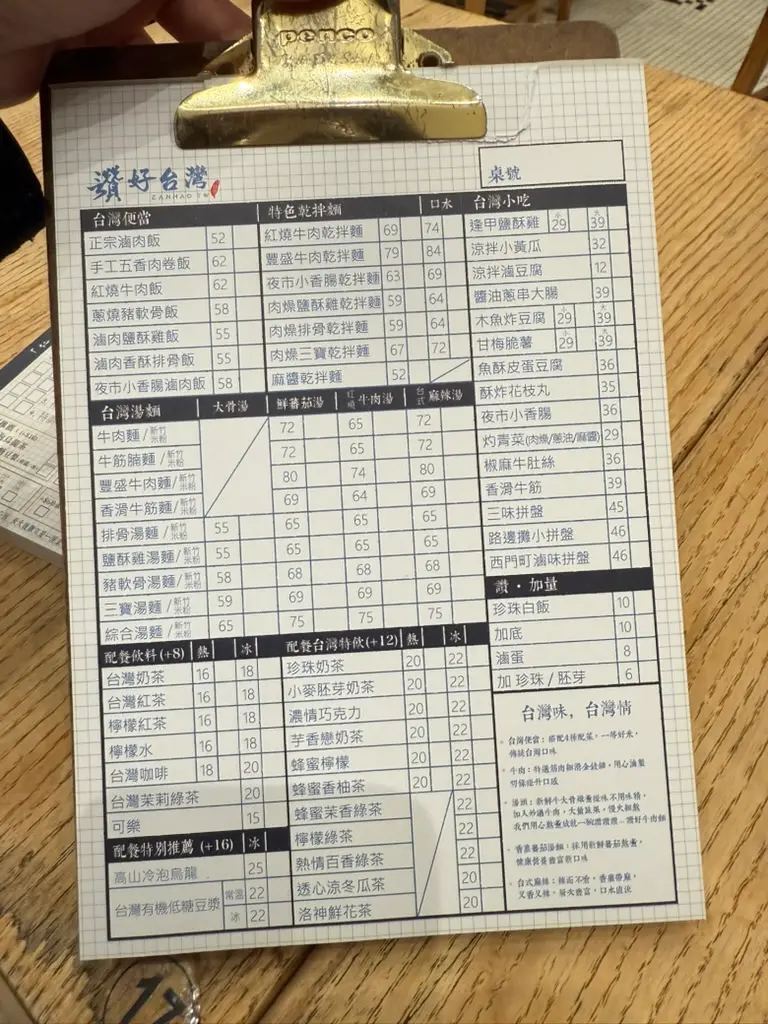 penco
讚好台灣
ZANHAO TW
桌號
台灣便當
正宗滷肉飯 52
手工五香肉卷飯 62
紅燒牛肉飯 62
蔥燒豬軟骨飯 58
滷肉鹽酥雞飯 55
滷肉香酥排骨飯 55
夜市小香腸滷肉飯 58
特色乾拌麵 口水
紅燒牛肉乾拌麵 69 74
豐盛牛肉乾拌麵 79 84
夜市小香腸乾拌麵 63 69
肉燥鹽酥雞乾拌麵 59 64
肉燥排骨乾拌麵 59 64
肉燥三寶乾拌麵 67 72
麻醬乾拌麵 52
台灣小吃
逢甲鹽酥雞 小29 大39
涼拌小黃瓜 32
涼拌滷豆腐 12
醬油蔥串大腸 39
木魚炸豆腐 小29 大39
甘梅脆薯 小29 大39
魚酥皮蛋豆腐 36
酥炸花枝丸 35
夜市小香腸 36
灼青菜(肉燥/蔥油/麻醬) 29
椒麻牛肚絲 36
香滑牛筋 39
三味拼盤 45
路邊攤小拼盤 46
西門町滷味拼盤 46
台灣湯麵 大骨湯 鮮蕃茄湯 紅燒牛肉湯 台式麻辣湯
牛肉麵/新竹米粉 72 65 72
牛筋腩麵/新竹米粉 72 65 72
豐盛牛肉麵/新竹米粉 80 74 80
香滑牛筋麵/新竹米粉 69 64 69
排骨湯麵/新竹米粉 55 65 65 65
鹽酥雞湯麵/新竹米粉 55 65 65 65
豬軟骨湯麵/新竹米粉 58 68 68 68
三寶湯麵/新竹米粉 59 69 69 69
綜合湯麵/新竹米粉 65 75 75 75
讚・加量
珍珠白飯 10
加底 10
滷蛋 8
加 珍珠/胚芽 6
配餐飲料(+8) 熱 冰
台灣奶茶 16 18
台灣紅茶 16 18
檸檬紅茶 16 18
檸檬水 16 18
台灣咖啡 18 20
台灣茉莉綠茶 20
可樂 15
配餐特別推薦(+16) 冰
高山冷泡烏龍 25
台灣有機低糖豆漿 常溫 22
冰 22
配餐台灣特飲(+12) 熱 冰
珍珠奶茶 20 22
小麥胚芽奶茶 20 22
濃情巧克力 20 22
芋香戀奶茶 20 22
蜂蜜檸檬 20 22
蜂蜜香柚茶 20 22
蜂蜜茉香綠茶 22
檸檬綠茶 22
熱情百香綠茶 22
透心涼冬瓜茶 20
洛神鮮花茶 20
台灣味，台灣情
台灣便當：搭配4樣配菜，一等好米，
傳統台灣口味